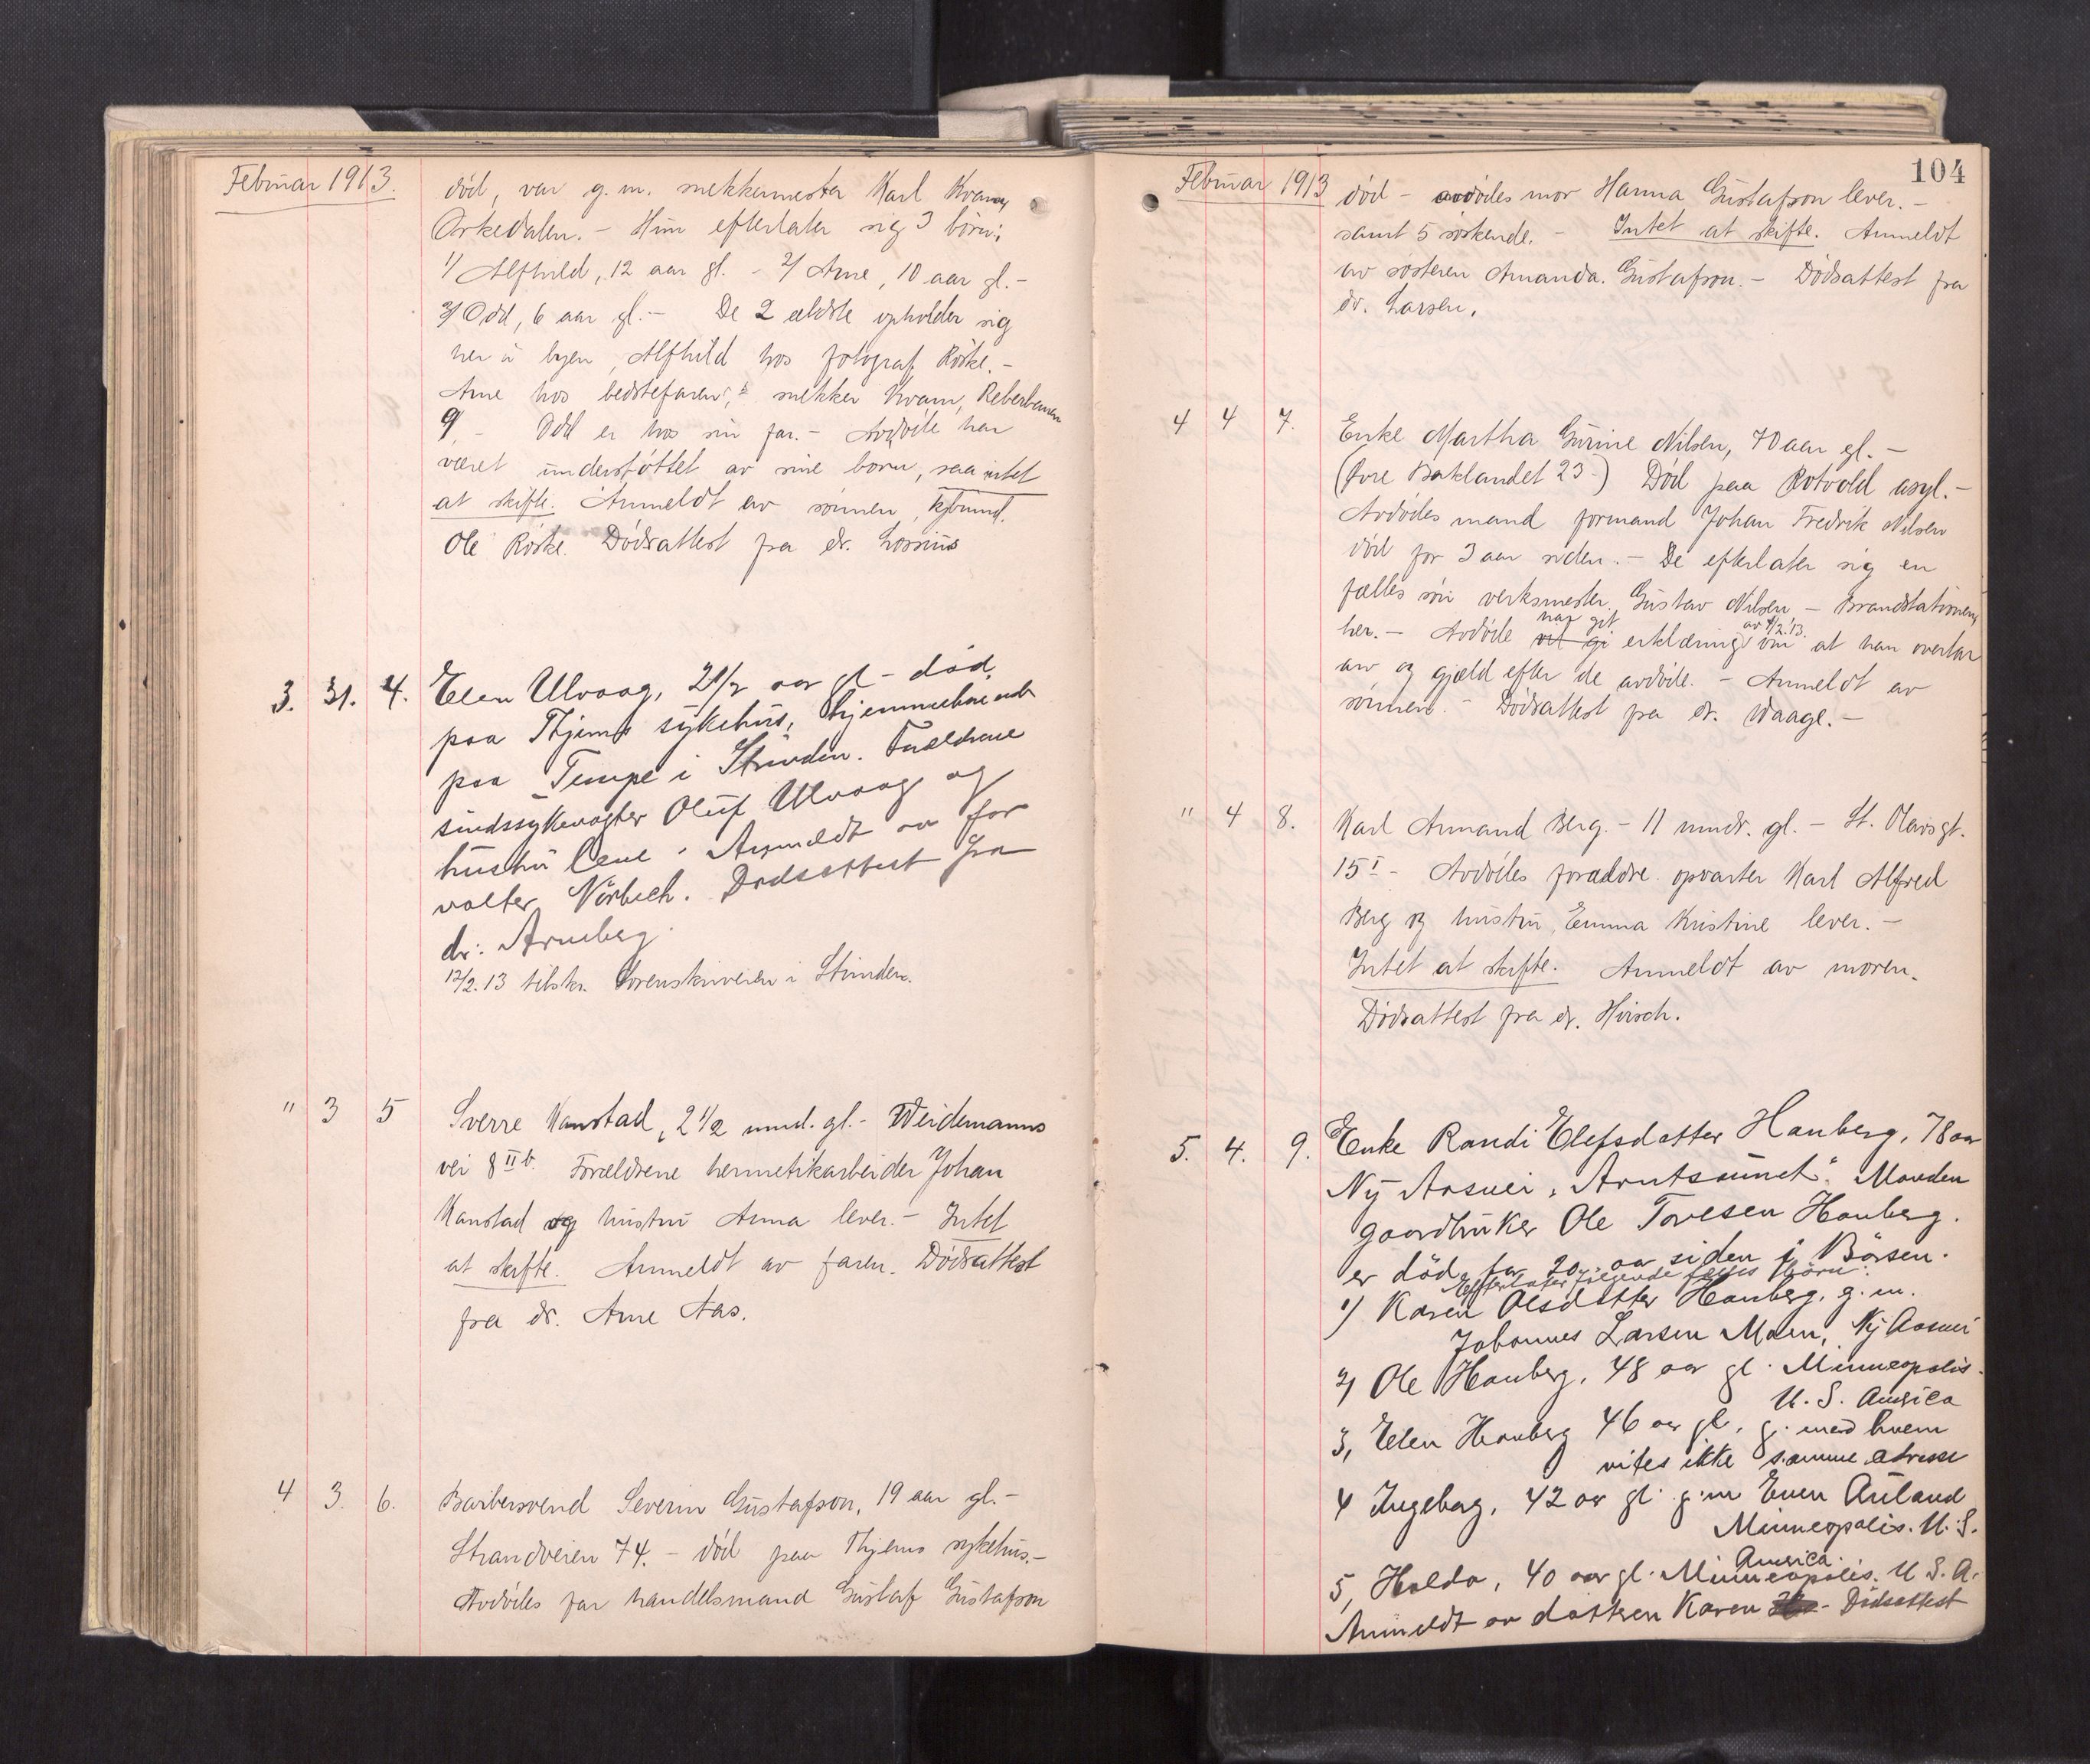 Februar 1913.
død, var g. m. snekkermester Karl Kvam,
Orkedalen. - Hun efterlater sig 3 børn:
1/ Alfhild, 12 aar gl. - 2/ Arne, 10 aar gl. -
3/ Odd, 6 aar gl. - De 2 ældste opholder sig
her i byen, Alfhild hos fotograf Röske. -
Arne hos bedstefaren, snekker Kvam, Reberbanen
9, - Odd er hos sin far. - Avdöde har
været understöttet av sine børn, saa intet
at skifte. Anmeldt av sönnen,
Ole Röske. Dödsattest fra dr. Lossius
3. 31. 4. Elen Ulvaag, 2 1/2 aar gl - död
paa Thjems sykehus, hjemmehörende
paa Tempe i Strinden. Forældrene
sindssykevogter Oluf Ulvaag og
hustru Lene. Anmeldt av for
valter Nörbech. Dødsattest fra
dr. Arneberg.
12/2.13 tilskr. Sorenskriveren i Strinden.
" 3 5 Sverre Kanstad, 2 1/2 mnd. gl. - Weidemanns
vei 8 II b. Forældrene hermetikarbeider Johan
Kanstad og hustru Anna lever. - Intet
at skifte. Anmeldt av faren. Dödsattest
fra dr. Arne Aas.
4 3. 6. Barbersvend Severin Gustafson, 19 aar gl. -
Strandveien 74. - död paa Thjems sykehus. -
Avdödes far handelsmand Gustaf Gustafson
104
Februar 1913
död - avdödes mor Hanna Gustafson lever. -
samt 5 söskende. - Intet at skifte. Anmeldt
av søsteren Amanda Gustafson. - Dödsattest fra
dr. Larsen.
4 4 7. Enke Martha Gurine Nilsen, 70 aar gl. -
(Övre Baklandet 23-) Död paa Rotvold asyl. -
Avdödes mand formand Johan Fredrik Nilsen
död for 3 aar siden. - De efterlater sig en
fælles sön verksmester Gustav Nilsen - Brandstationen,
har git av 4/2.13.
her. - Avdöde vil gi erklæring om at han overtar
arv og gjæld efter de avdöde. - Anmeldt av
sönnen. - Dödsattest fra dr. Waage. -
" 4 8. Karl Armand Berg. - 11 mndr. gl. - St. Olavsgt.
15 I - Avdödes forældre opvarter Karl Alfred
Berg og hustru, Emma Kristine lever. -
Intet at skifte. Anmeldt av moren.
Dödsattest fra dr. Hirsch.
5. 4. 9. Enke Randi Elefsdatter Hanberg, 78 aar
Ny Aasvei, "Arntsünet". Manden
gaardbruker Ole Toresen Hanberg.
er död for 20 aar siden i Börsen.
efterlater fölgende fælles börn:
1) Karen Olsdatter Hanberg, g. m.
Johannes Larsen Moen, Ny Aasvei
2) Ole Hanberg, 48 aar gl. Minneapolis.
U. S. America
3, Elen Hanberg 46 aar gl, g. med hvem
vites ikke samme adresse
4 Ingeborg, 42 aar gl. g. m Even Auland
Minneapolis. U. S.
America.
5, Halda, 40 aar gl. Minneapolis. U S. A.
Anmeldt av datteren Karen Dödsattest